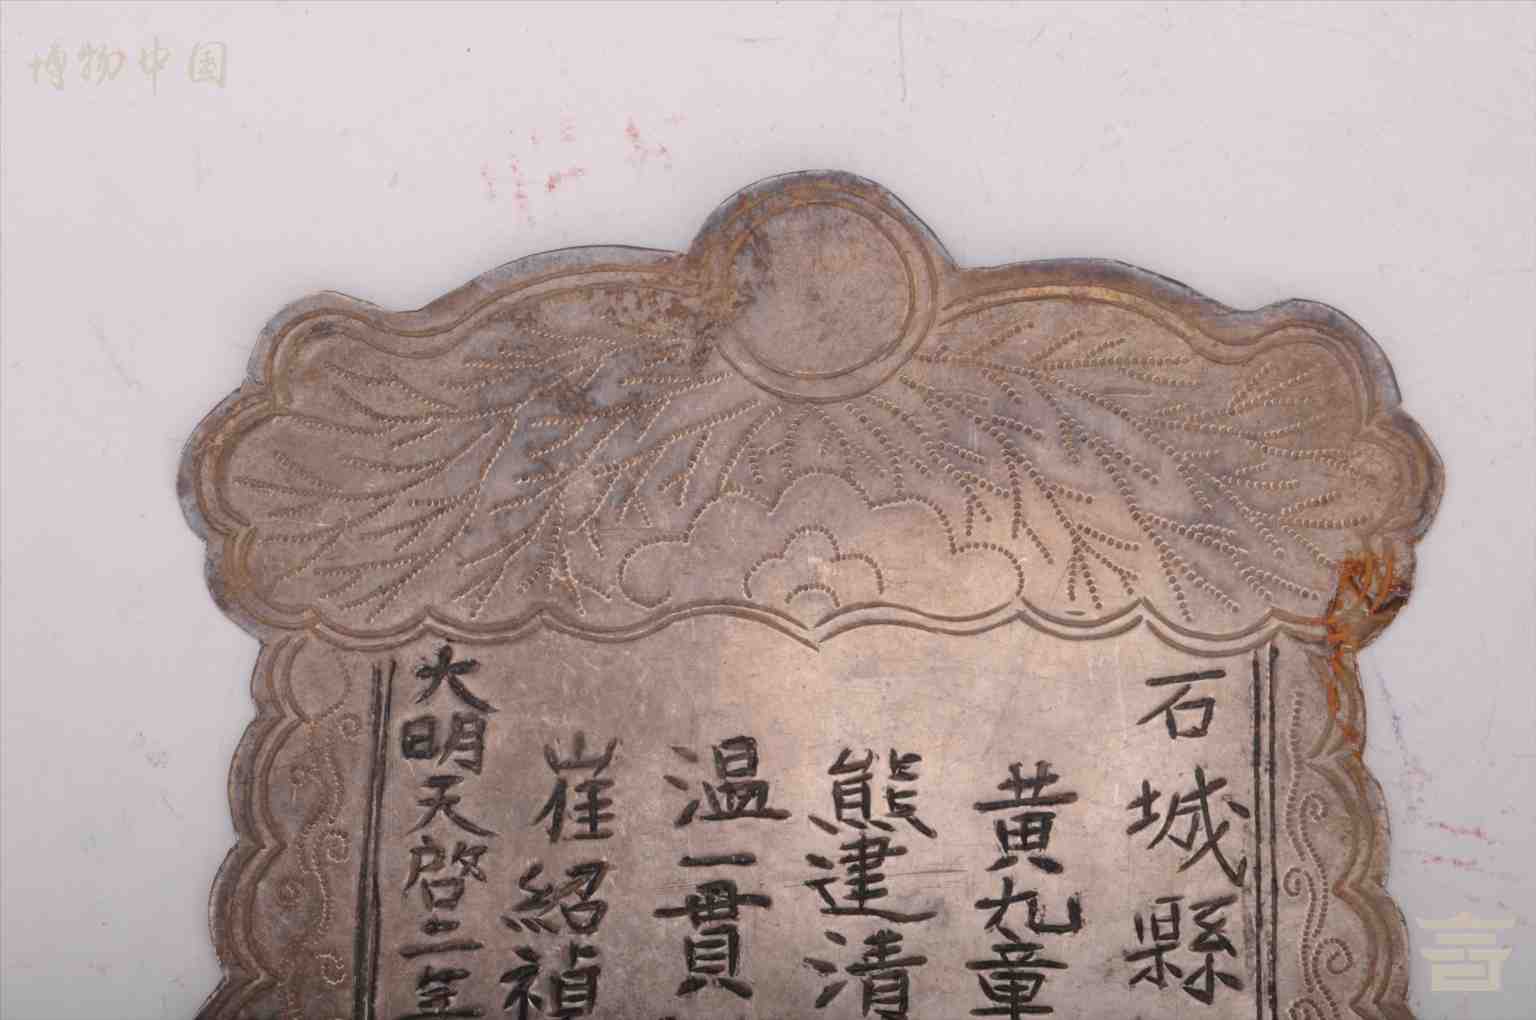 博物中国
石城縣
黄九章
熊建清
温一貫
崔紹禎
大明天啓二年